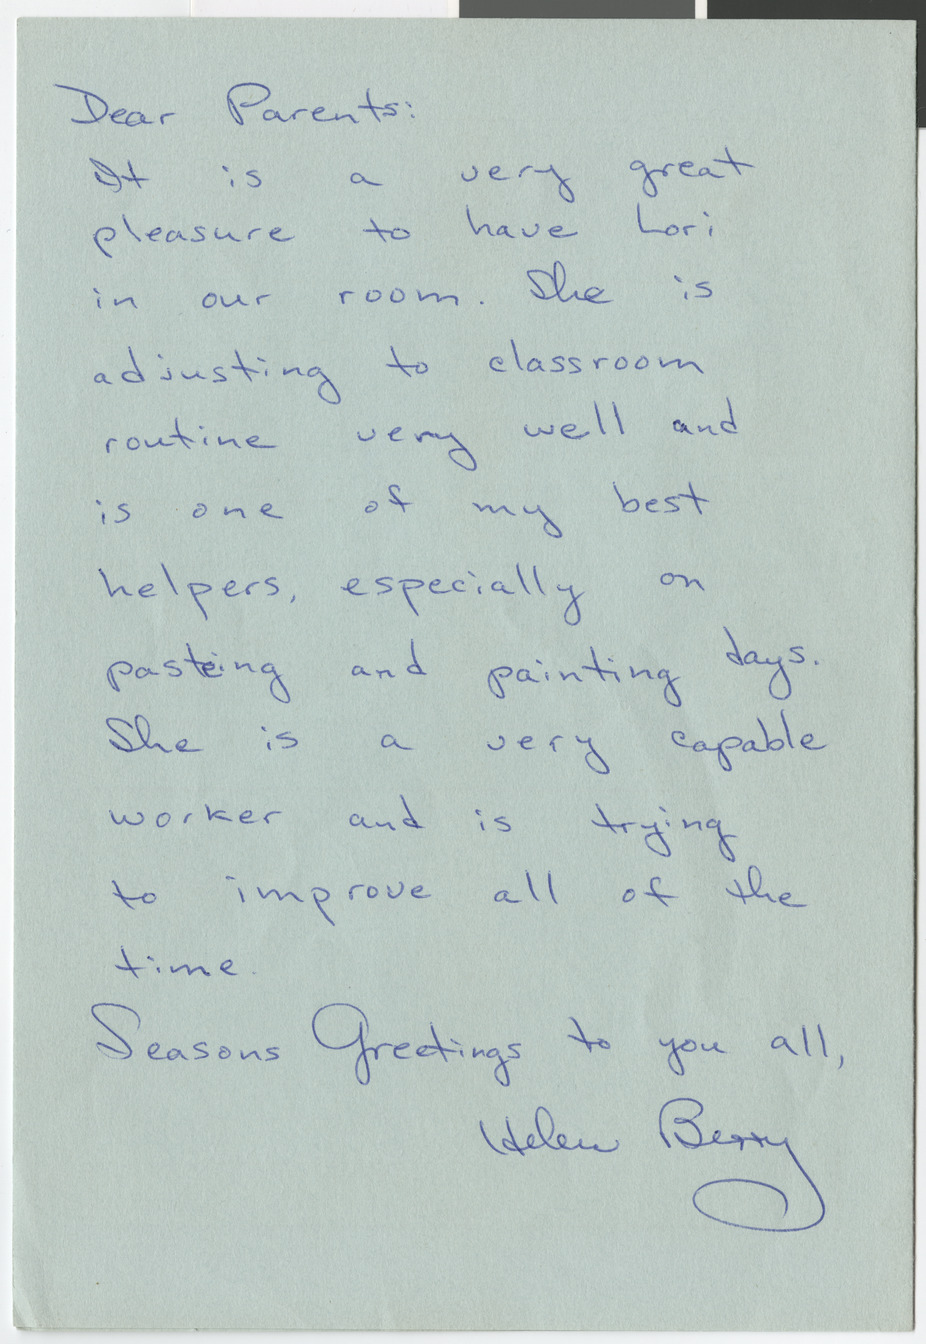 Dear Parents:
It is a very great
pleasure to have Lori
in our room. She is
adjusting to classroom
routine very well and
is one of my best
helpers, especially on
pasteing and painting days.
She is a very capable
worker and is trying
to improve all of the
time.
Seasons Greetings to you all,
Helen Berry